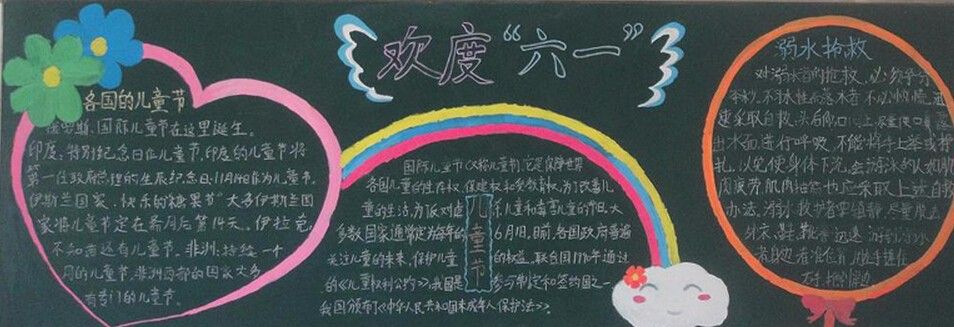 欢度“六一”
各国的儿童节
俄罗斯:国际儿童节在这里诞生。
印度:特别纪念日作儿童节,印度的儿童节将
第一任政府总理的生辰纪念日11月14日作为儿童节。
伊斯兰国家:快乐的“糖果节”大多伊斯兰国
家将儿童节定在斋月后第14天。伊拉克
不知道还有儿童节。非洲:持续一个
月的儿童节,非洲西部的国家大多
有专门的儿童节。
儿童节
国际儿童节(又称儿童节),它是保障世界
各国儿童的生存权、保健权和受教育权,为了改善儿
童的生活,为 儿童和毒害儿童的 大
多数国家通常定为每年的6月1日。目前,各国政府普遍
关注儿童的未来,保护儿童的权益。联合国1990年通过
的《儿童权利公约》,我国是参与制定和签约国之一
我国颁布了《中华人民共和国未成年人保护法》。
溺水抢救
对溺水者的抢救,必须争分
夺秒。不习水性而落水者,不必惊慌,迅
速采取自救:头后仰,口向上,尽量使口鼻露
出水面,进行呼吸,不能将手上举或挣
扎,以免使身体下沉。会游泳的人如肌
肉疲劳、肌肉抽筋也应采取上述自救
办法。 救护者要镇静,尽量脱去
外衣、鞋、靴等,迅速游到溺水
者